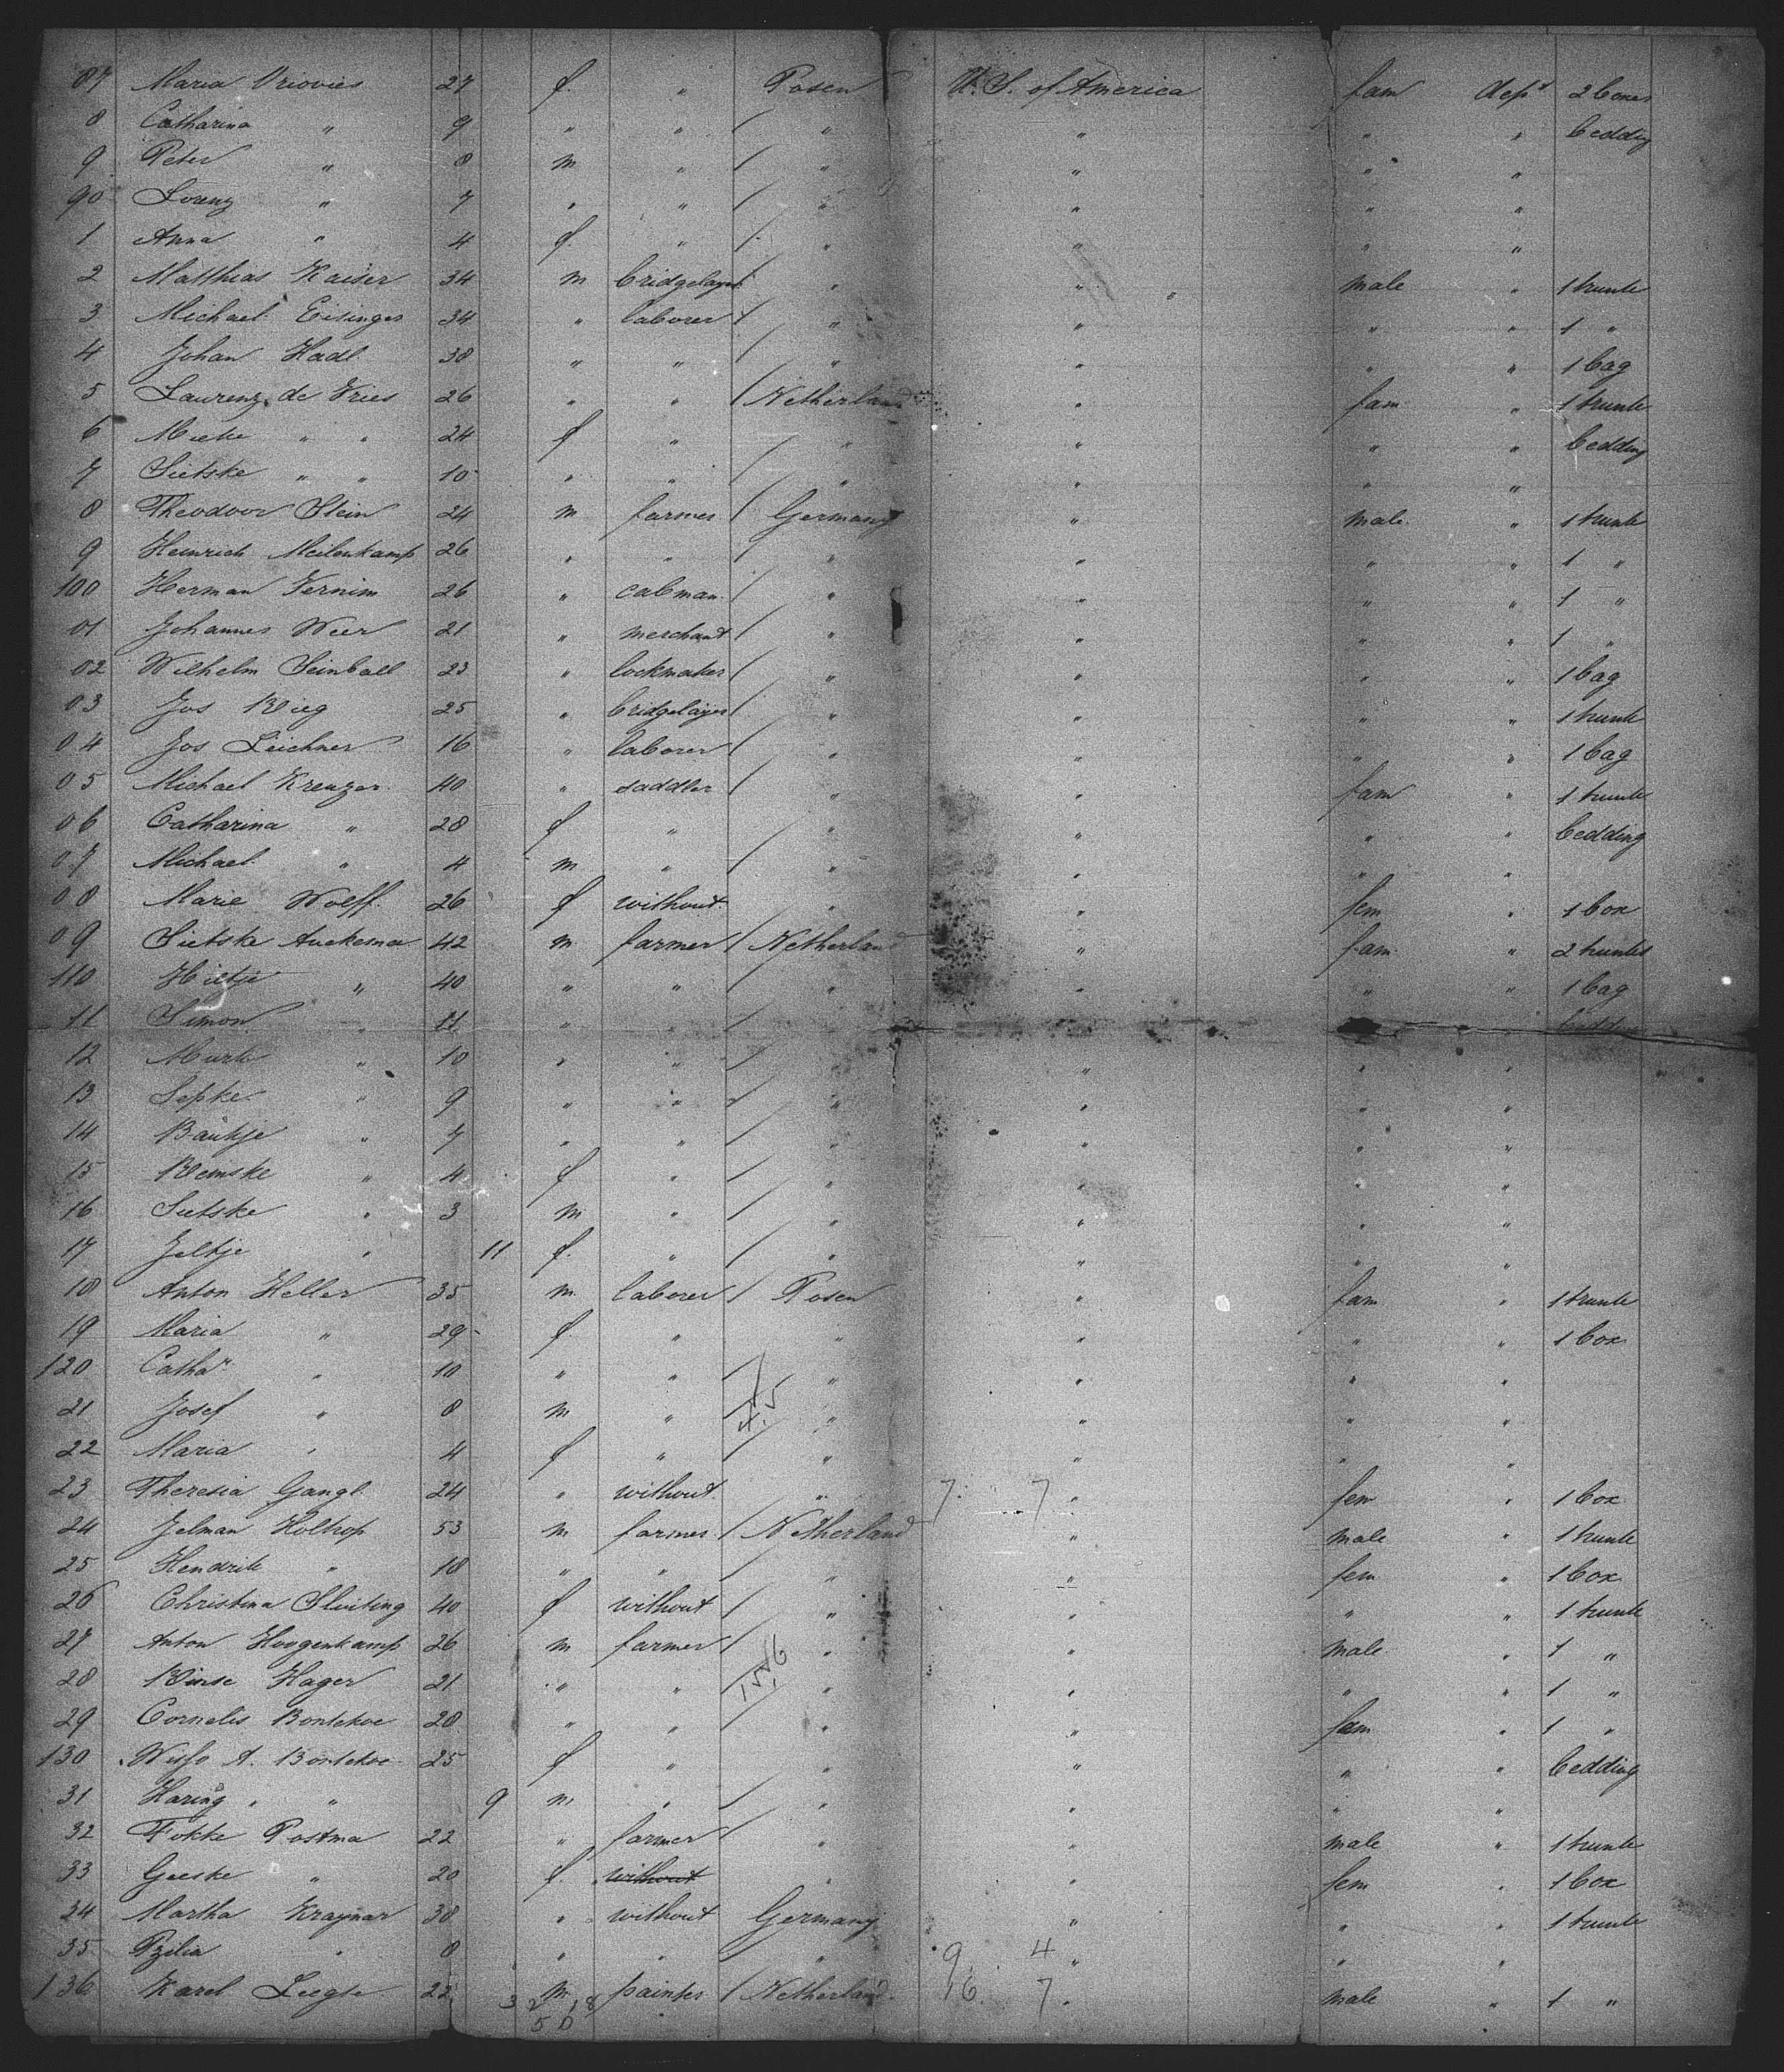 87 Maria Vriovies 27 f. " Posen U. S. of America fam dep't 2 boxes
8 Catharina " 9 " " / " " " " bedding
9 Peter " 8 m " / " " " "
90 Lorenz " 7 " " / " " " "
1 Anna " 4 f. " / " " " "
2 Matthias Kaiser 34 m bridgelayer / " " male " 1 trunk
3 Michael Eisinger 34 " laborer / " " " " 1 "
4 Johan Hadl 38 " " / " " " " 1 bag
5 Laurenz de Vries 26 " " / Netherland " fam " 1 trunk
6 Mieke " " 24 f " / " " " " bedding
7 Sietske " " 10 " " / " " " "
8 Theodoor Stein 24 m farmer / Germany " male " 1 trunk
9 Heinrich Meilenkamp 26 " " / " " " " 1 "
100 Herman Vernim 26 " cabman / " " " " 1 "
01 Johannes Weer 21 " merchant / " " " " 1 "
02 Wilhelm Seinball 23 " lockmaker / " " " " 1 bag
03 Jos Rieg 25 " bridgelayer / " " " " 1 trunk
04 Jos Leichner 16 " laborer / " " " " 1 bag
05 Michael Kreuzer 40 " saddler / " " fam " 1 trunk
06 Catharina " 28 f " / " " " " bedding
07 Michael " 4 m " / " " " "
08 Marie Wolff 26 f without " " fem " 1 box
09 Sietske Auekema 42 m farmer / Netherland " fam " 2 trunks
110 Hieltje " 40 " " / " " " " 1 bag
11 Simon " 11 " " / " bedding
12 Murk " 10 " " / " " "
13 Sepke " 9 " " / " " " "
14 Baukje " 7 " " / " " " "
15 Remske " 4 f " / " " " "
16 Sietske " 3 m " / " " " "
17 Jeltje " 11 f. " / " " " "
18 Anton Heller 35 m laborer / Posen " fam " 1 trunk
19 Maria " 29 f " " " " " 1 box
120 Cathar " 10 " " / " " " "
21 Josef " 8 m " / " " " "
22 Maria " 4 f " / " " " "
23 Theresia Gangl 24 " without " 7 7 " fem " 1 box
24 Jelman Holtrop 53 m farmer / Netherland " male " 1 trunk
25 Hendrik " 18 " " / " " fem " 1 box
26 Christina Sluiting 40 f without / " " " " 1 trunk
27 Anton Hoogenkamp 26 m farmer / " " male " 1 "
28 Rinse Hager 21 " " / " " " " 1 "
29 Cornelis Bontekoe 28 " " / " " fam " 1 "
130 A. Bontekoe 25 f " " " " " bedding
31 Haring " " 9 m " / " " " "
32 Fokke Postma 22 " farmer / " " male " 1 trunk
33 Geeske " 20 f. without " " fem " 1 box
34 Martha Kraynar 38 " without Germany " " " 1 trunk
35 " 8 " " / " 9 4 " " "
136 Karel Leegte 22 m painter / Netherland. 16. 7 " male " 1 "
3 2 18
50